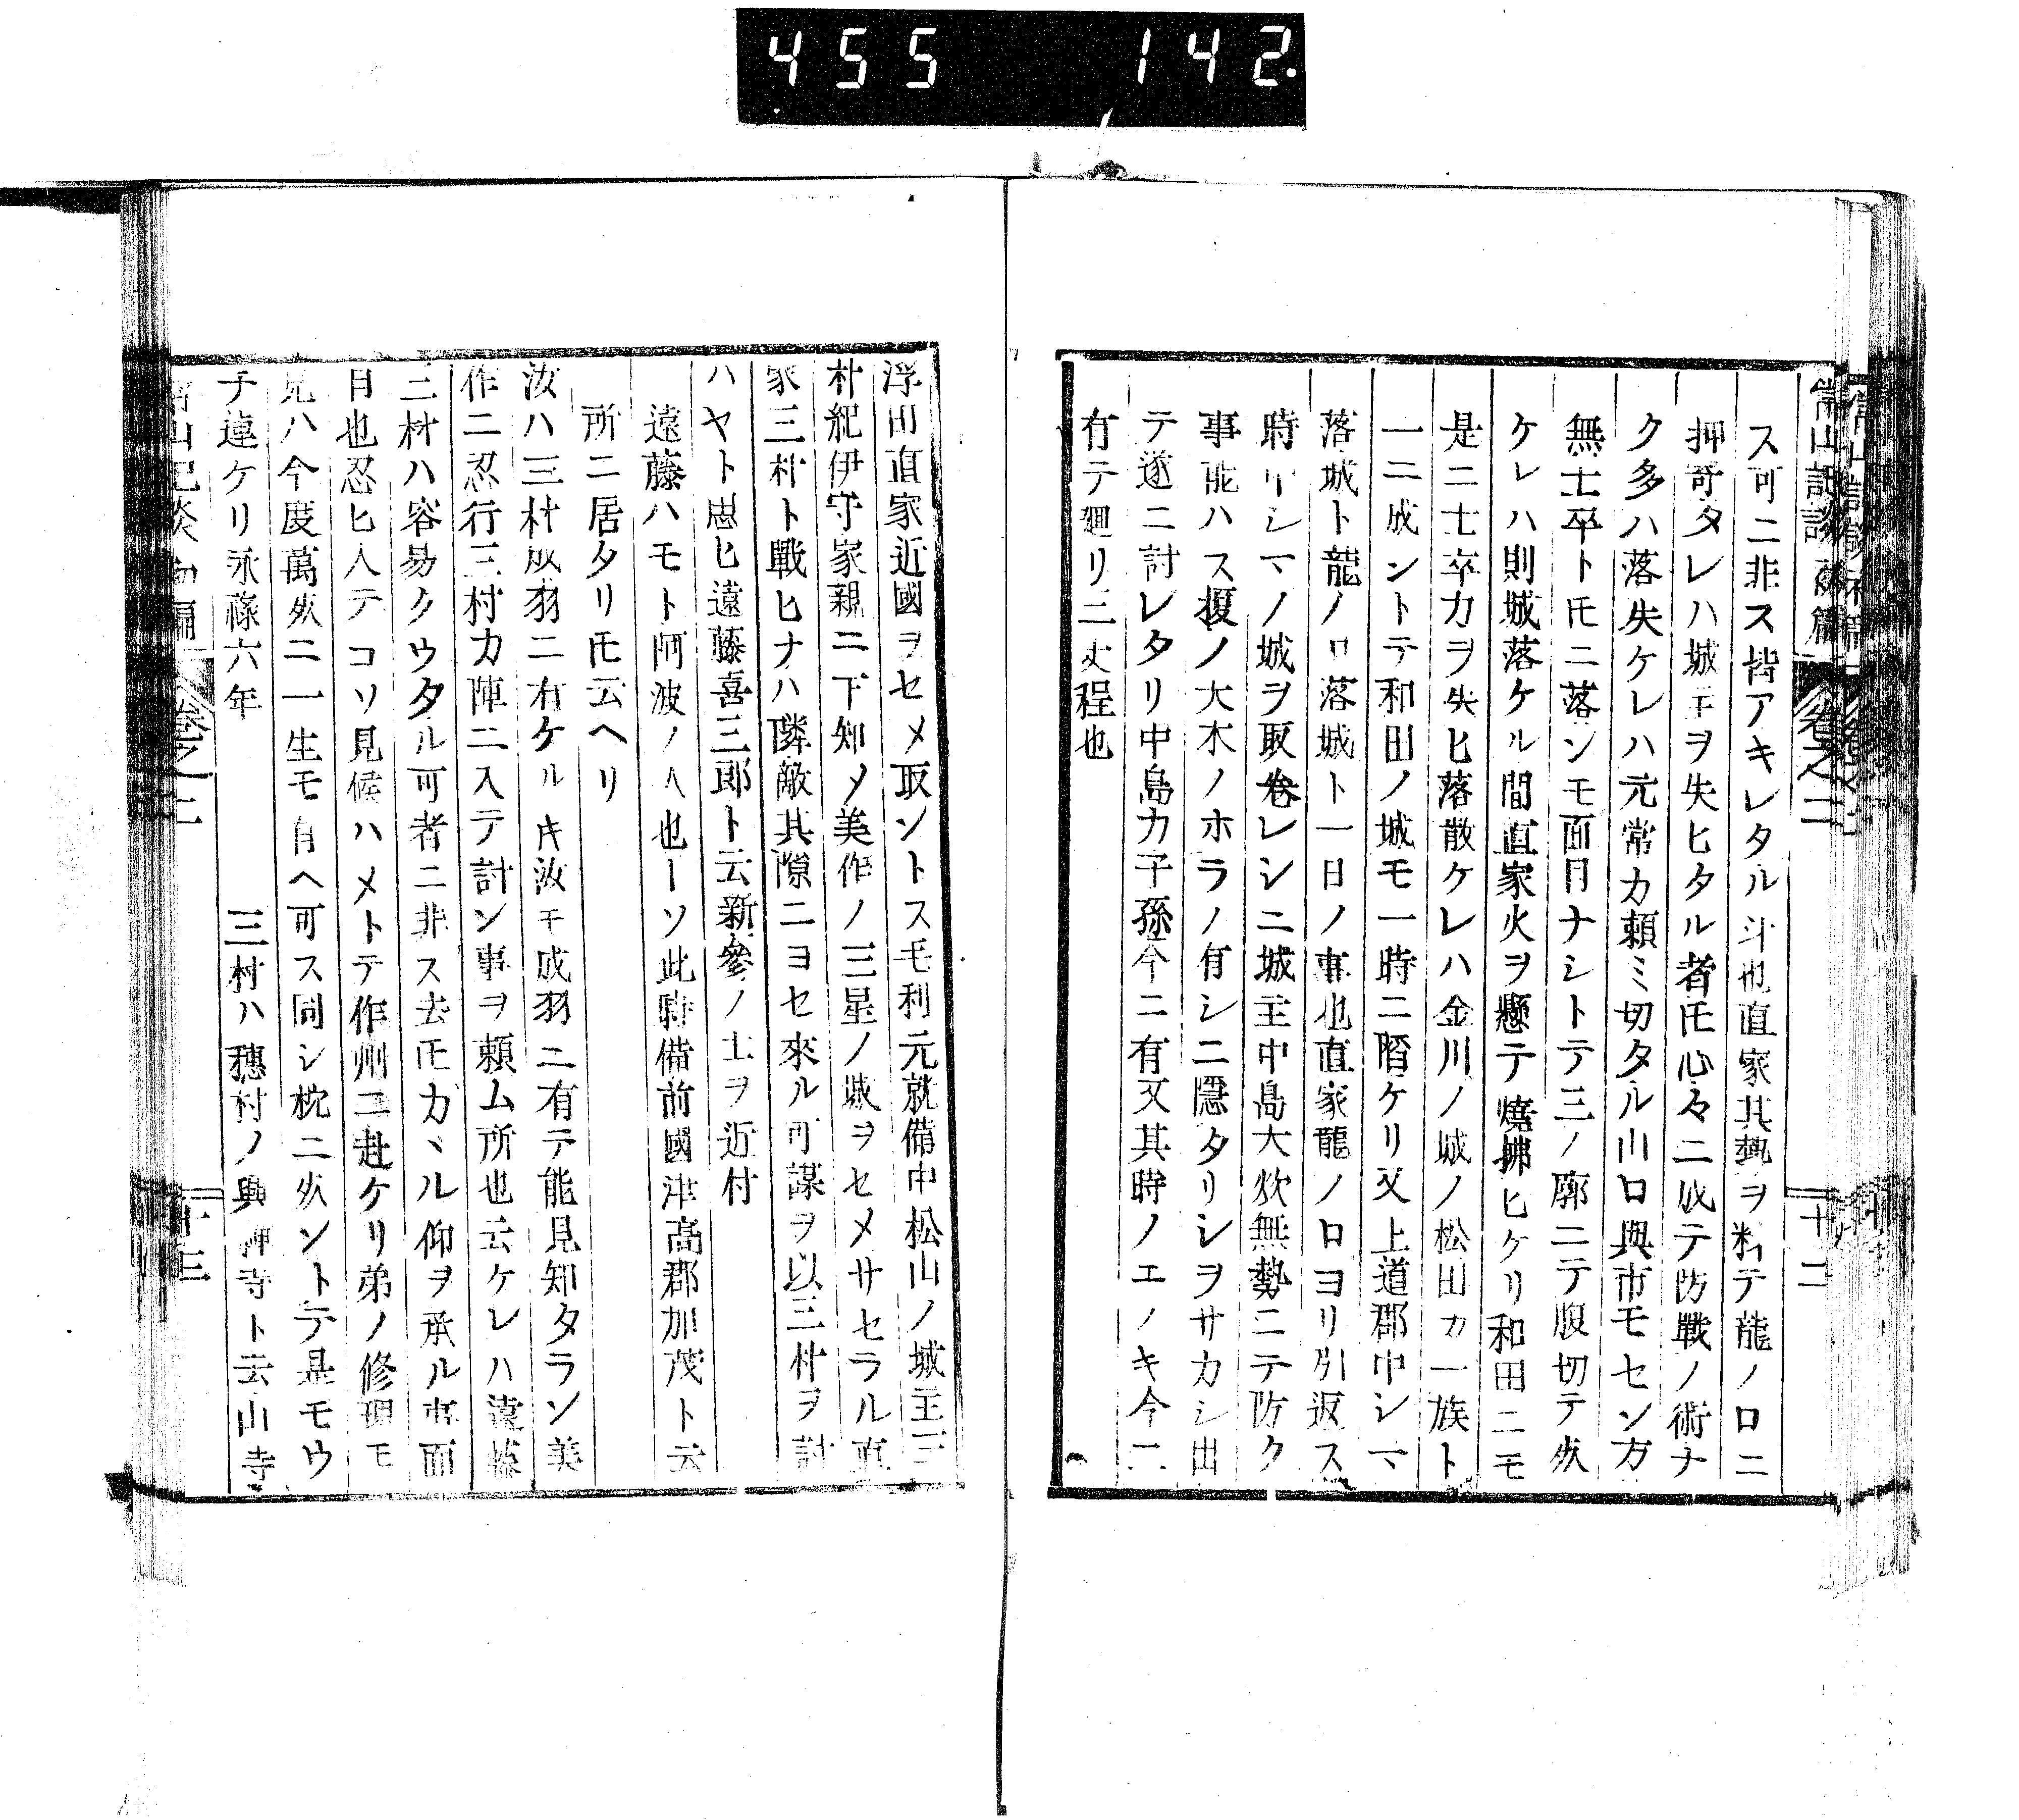 455 142.
常山記談初篇 卷之二 十二
ス可ニ非ス皆アキレタル斗也直家其勢ヲ料テ龍ノ口ニ
押寄タレハ城主ヲ失ヒタル者𪜈心々ニ成テ防戰ノ術ナ
ク多ハ落失ケレハ元常カ頼ミ切タル川口與市モセン方
無士卒ト𪜈ニ落ンモ面目ナシトテ三ノ廓ニテ腹切テ死
ケレハ則城落ケル間直家火ヲ懸テ燒拂ヒケリ和田ニモ
是ニ士卒力ヲ失ヒ落散ケレハ金川ノ城ノ松田カ一族ト
一ニ成ントテ和田ノ城モ一時ニ落ケリ又上道郡中シマ
落城ト龍ノ口落城ト一日ノ事也直家龍ノ口ヨリ引返ス
時中シマノ城ヲ取卷レシニ城主中島大炊無勢ニテ防ク
事能ハス榎ノ大木ノホラノ有シニ隱タリシヲサカシ出
テ遂ニ討レタリ中島カ子孫今ニ有又其時ノエノキ今ニ
有テ廻リ三丈程也
浮田直家近國ヲセメ取ントス毛利元就備中松山ノ城主三
村紀伊守家親ニ下知メ美作ノ三星ノ城ヲセメサセラル直
家三村ト戰ヒナハ隣敵其隙ニヨセ來ル可謀ヲ以三村ヲ討
ハヤト思ヒ遠藤喜三郎ト云新參ノ士ヲ近付
遠藤ハモト阿波ノ人也ーソ此時備前國津高郡加茂ト云
所ニ居タリ𪜈云ヘリ
汝ハ三村成羽ニ有ケルキ汝モ成羽ニ有テ能見知タラン美
作ニ忍行三村カ陣ニ入テ討ン事ヲ頼ム所也云ケレハ遠藤
三村ハ容易クウタル可者ニ非ス去𪜈カヽル仰ヲ承ル事面
目也忍ヒ入テコソ見候ハメトテ作州ニ赴ケリ弟ノ修理モ
兄ハ今度萬死ニ一生モ有ヘ可ス同シ枕ニ死ントテ是モウ
チ連ケリ永祿六年 三村ハ穗村ノ興禪寺ト云山寺
常山記談初編 卷之二 十三